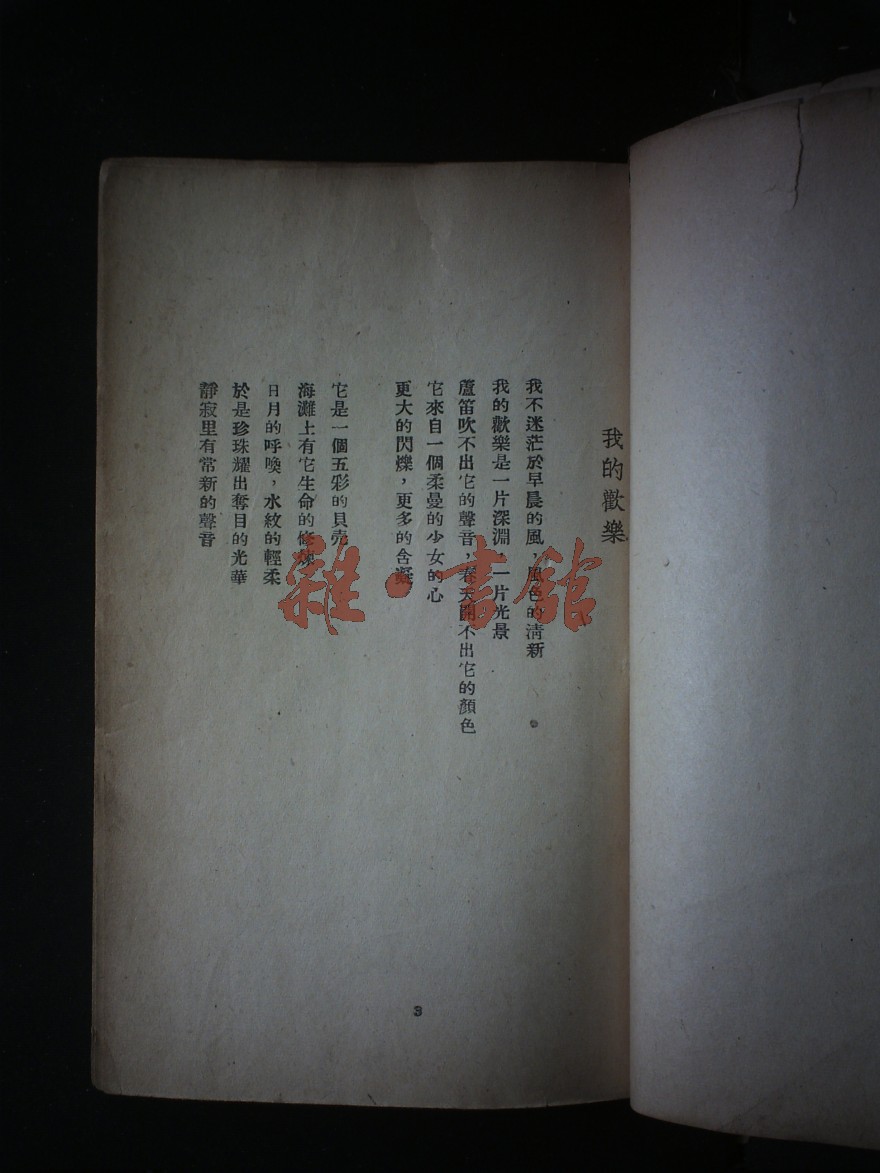 我的歡樂
我不迷茫於早晨的風，風色的清新
我的歡樂是一片深淵，一片光景
蘆笛吹不出它的聲音，春天開不出它的顏色
它來自一個柔曼的少女的心
更大的閃爍，更多的含凝
它是一個五彩的貝壳
海灘上有它生命的修煉
日月的呼喚，水紋的輕柔
於是珍珠耀出奪目的光華
靜寂里有常新的聲音
3
雜·書館